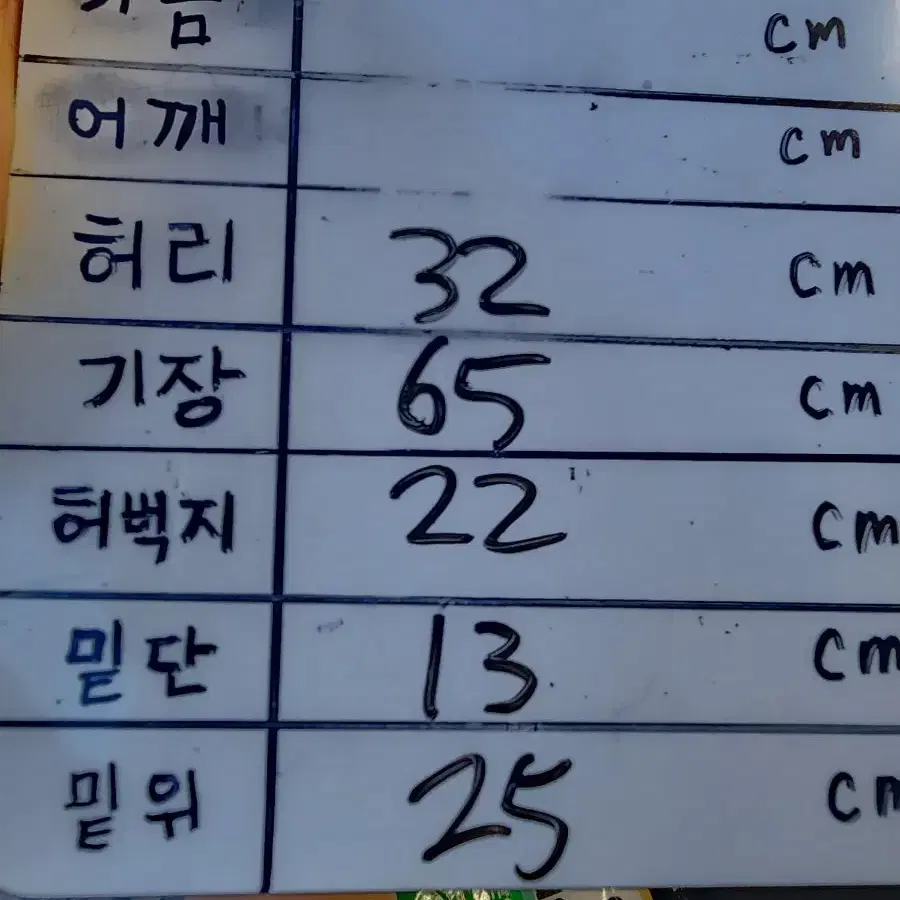 cm
어깨 cm
허리 32 cm
기장 65 cm
허벅지 22 cm
밑단 13 cm
밑위 25 cm